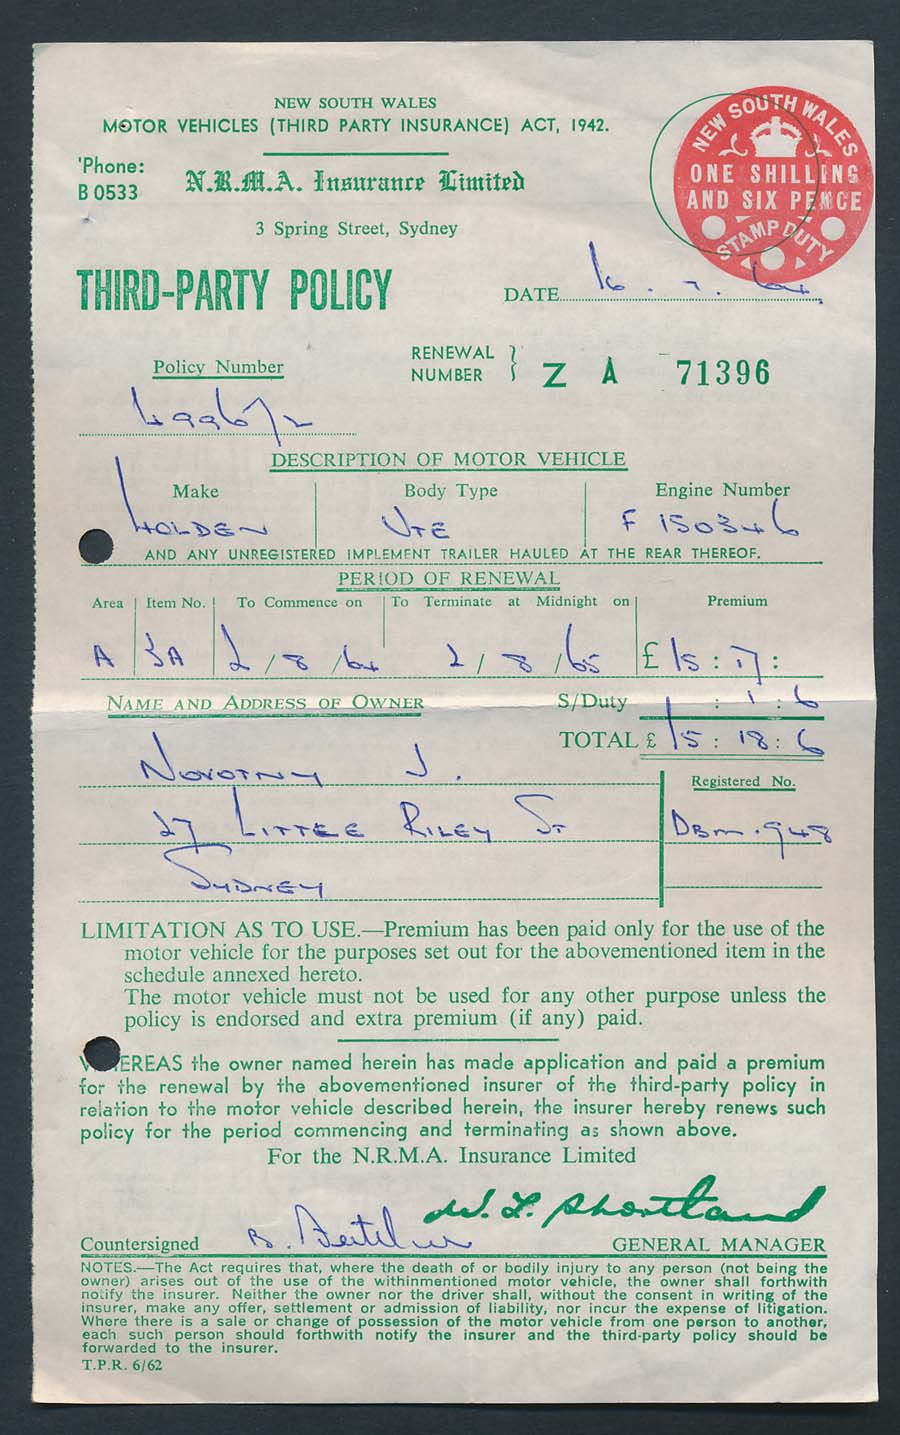 NEW SOUTH WALES
MOTOR VEHICLES (THIRD PARTY INSURANCE) ACT, 1942.
'Phone:
B 0533
N.R.M.A. Insurance Limited
3 Spring Street, Sydney
NEW SOUTH WALES
ONE SHILLING
AND SIX PENCE
STAMP DUTY
THIRD-PARTY POLICY
DATE 16 . 7 . 64.
Policy Number
RENEWAL NUMBER } Z A 71396
DESCRIPTION OF MOTOR VEHICLE
Make Body Type Engine Number
HOLDEN UTE F 150346
AND ANY UNREGISTERED IMPLEMENT TRAILER HAULED AT THE REAR THEREOF.
PERIOD OF RENEWAL
Area Item No. To Commence on To Terminate at Midnight on Premium
A 3A 2 / 8 / 64 2 / 8 / 65 £ 15 : 17 :
NAME AND ADDRESS OF OWNER
S/Duty : 1 : 6
TOTAL £ 15 : 18 : 6
NOVOTNY J.
Registered No.
27 LITTLE RILEY ST
DBM.948
SYDNEY
LIMITATION AS TO USE.—Premium has been paid only for the use of the
motor vehicle for the purposes set out for the abovementioned item in the
schedule annexed hereto.
The motor vehicle must not be used for any other purpose unless the
policy is endorsed and extra premium (if any) paid.
WHEREAS the owner named herein has made application and paid a premium
for the renewal by the abovementioned insurer of the third-party policy in
relation to the motor vehicle described herein, the insurer hereby renews such
policy for the period commencing and terminating as shown above.
For the N.R.M.A. Insurance Limited
W. L. Shortland
Countersigned B.
GENERAL MANAGER
NOTES.—The Act requires that, where the death of or bodily injury to any person (not being the
owner) arises out of the use of the withinmentioned motor vehicle, the owner shall forthwith
notify the insurer. Neither the owner nor the driver shall, without the consent in writing of the
insurer, make any offer, settlement or admission of liability, nor incur the expense of litigation.
Where there is a sale or change of possession of the motor vehicle from one person to another,
each such person should forthwith notify the insurer and the third-party policy should be
forwarded to the insurer.
T.P.R. 6/62